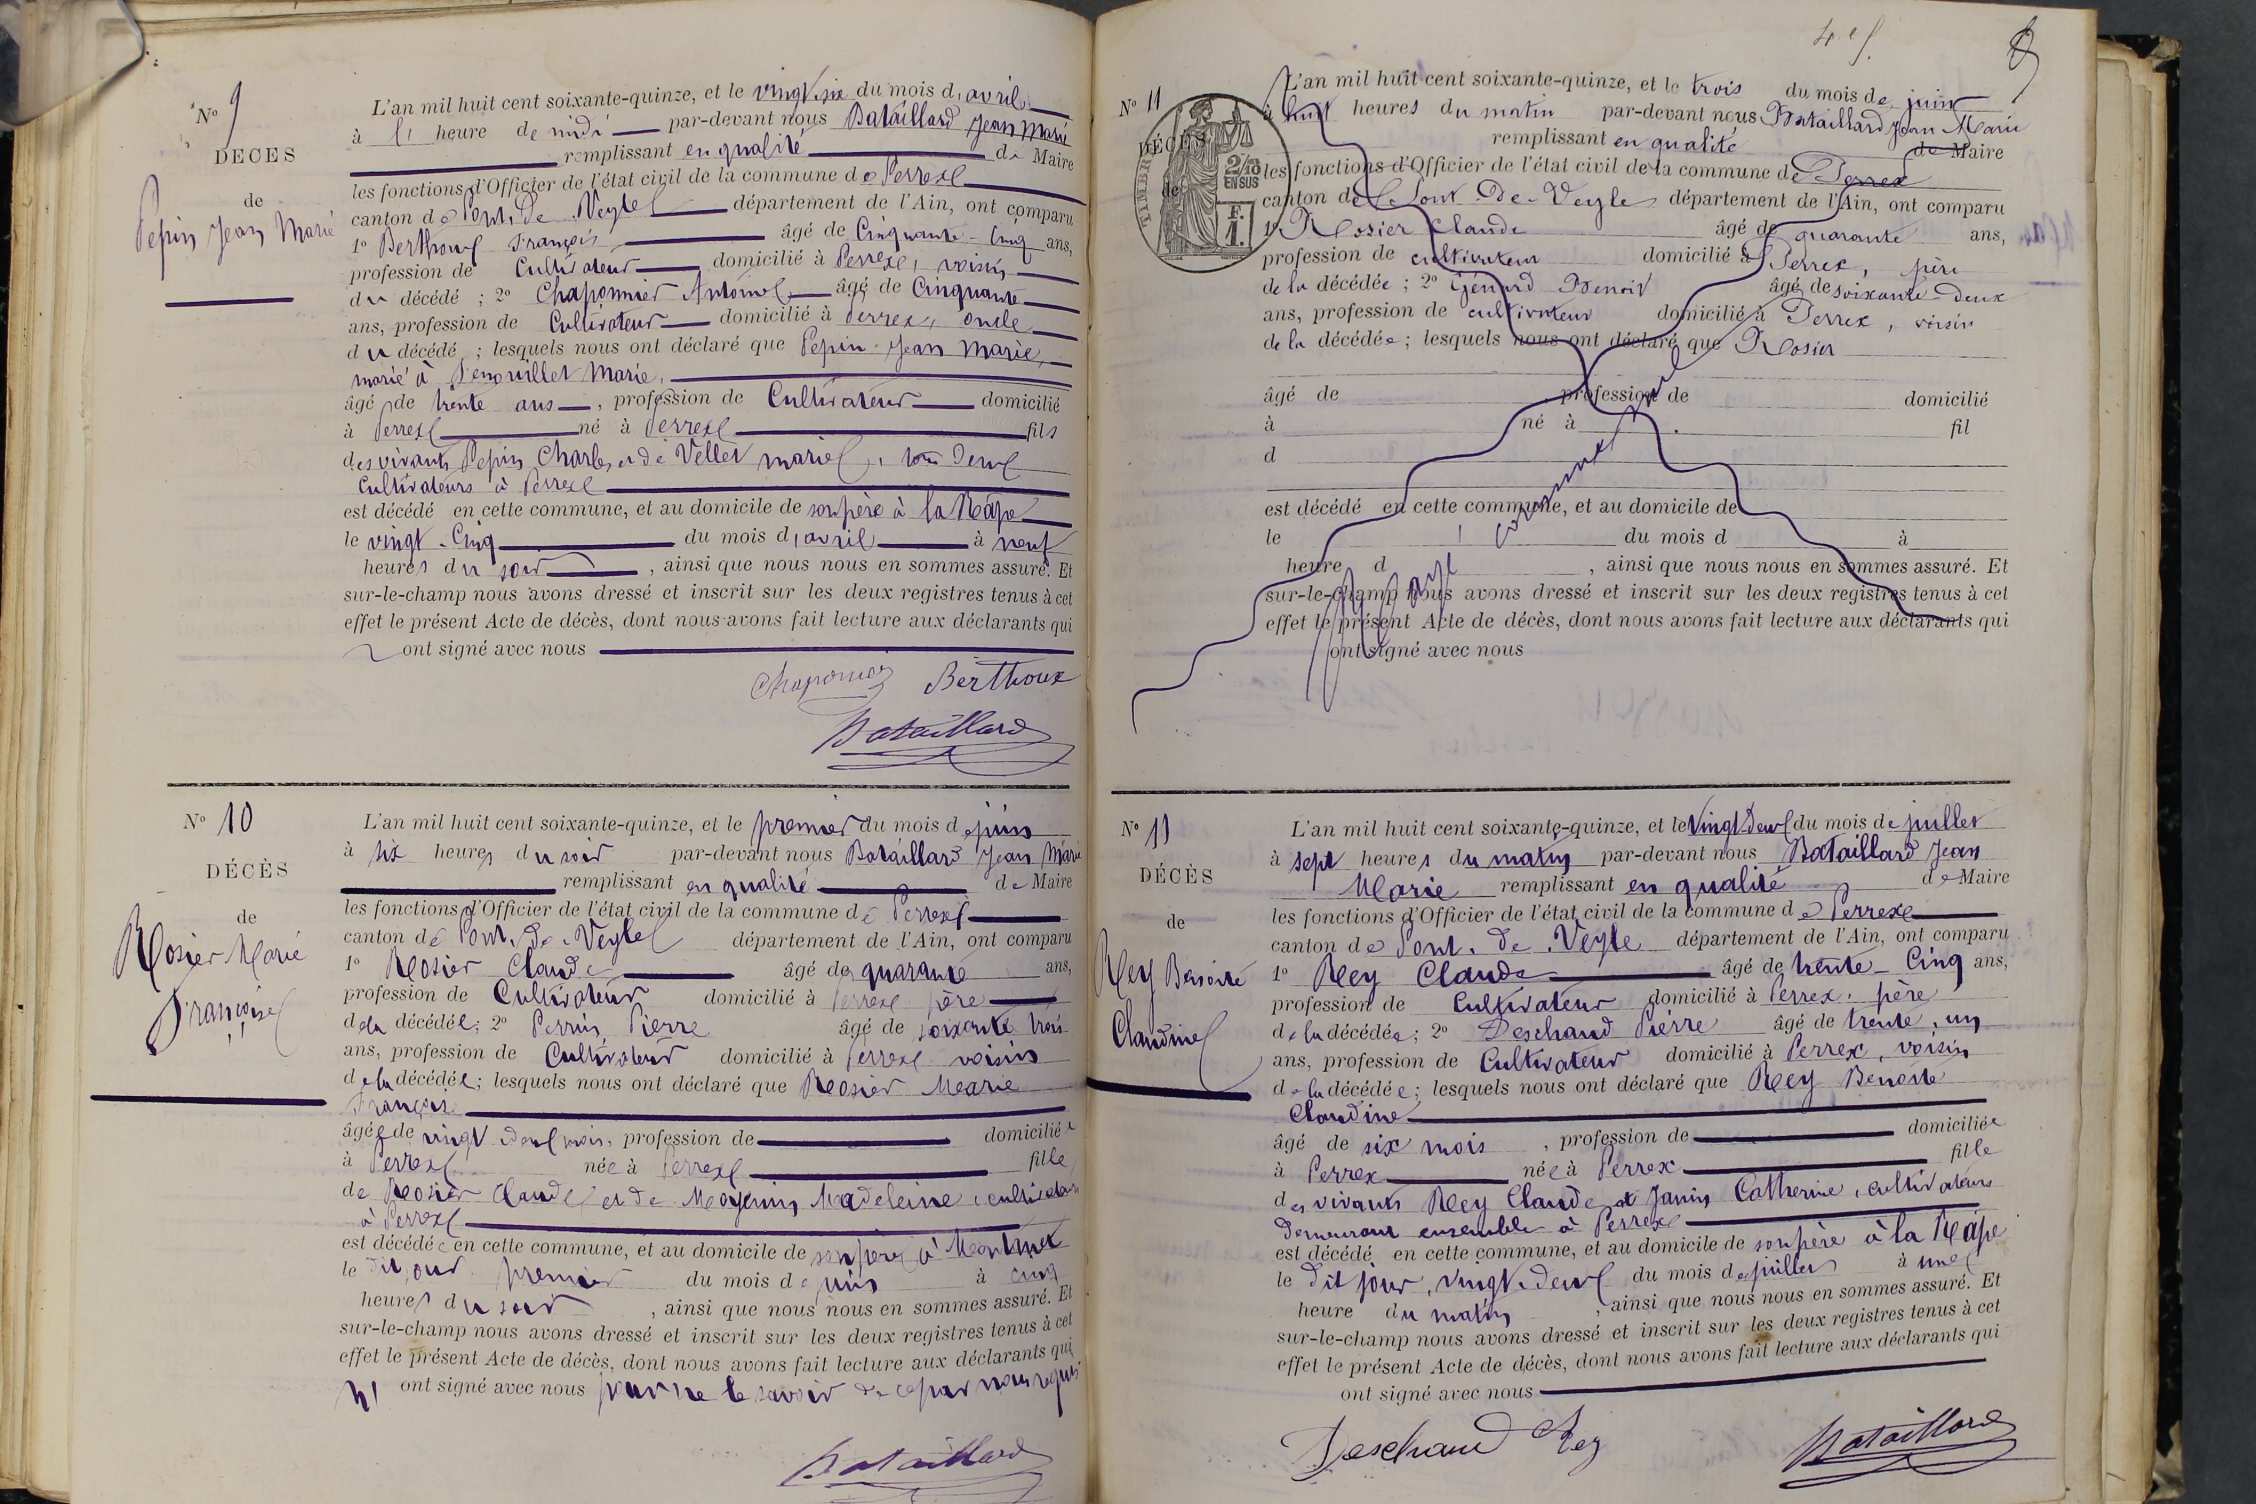 N° 9
DÉCÈS
de
Pepin Jean Marie
L'an mil huit cent soixante-quinze, et le vingt-six du mois d'avril
à l' heure de midi par-devant nous Bataillard Jean Marie
remplissant en qualité de Maire
les fonctions d'Officier de l'état civil de la commune de Perrex
canton de Pont-De-Veyle département de l'Ain, ont comparu
1° Berthoux François âgé de Cinquante-Cinq ans,
profession de Cultivateur domicilié à Perrex, voisin
du décédé ; 2° Chaponnier Antoine âgé de Cinquante
ans, profession de Cultivateur domicilié à Perrex, oncle
du décédé ; lesquels nous ont déclaré que Pepin Jean Marie,
marié à Penouillet Marie,
âgé de trente ans, profession de Cultivateur domicilié
à Perrex né à Perrex fils
des vivants Pepin Charles et de Vellet marie, tous Deux
Cultivateurs à Perrex
est décédé en cette commune, et au domicile de son père à la Râpe
le vingt-Cinq du mois d'avril à neuf
heures du soir, ainsi que nous nous en sommes assuré. Et
sur-le-champ nous avons dressé et inscrit sur les deux registres tenus à cet
effet le présent Acte de décès, dont nous avons fait lecture aux déclarants qui
ont signé avec nous
Chaponnier Berthoux
Bataillard
N° 10
DÉCÈS
de
Rosier Marie
Françoise
L'an mil huit cent soixante-quinze, et le premier du mois de juin
à six heures du soir par-devant nous Bataillard Jean Marie
remplissant en qualité de Maire
les fonctions d'Officier de l'état civil de la commune de Perrex
canton de Pont-De-Veyle département de l'Ain, ont comparu
1° Rosier Claude âgé de quarante ans,
profession de Cultivateur domicilié à Perrex père
de la décédée ; 2° Perrin Pierre âgé de soixante trois
ans, profession de Cultivateur domicilié à Perrex voisin
de la décédée ; lesquels nous ont déclaré que Rosier Marie
Françoise
âgée de vingt-deux mois, profession de domiciliée
à Perrex née à Perrex fille
de Rosier Claude et de Moyenin Madeleine, cultivateurs
à Perrex
est décédée en cette commune, et au domicile de son père à Montmet
le dit jour premier du mois de juin à cinq
heures du soir, ainsi que nous nous en sommes assuré. Et
sur-le-champ nous avons dressé et inscrit sur les deux registres tenus à cet
effet le présent Acte de décès, dont nous avons fait lecture aux déclarants qui
n' ont signé avec nous pour ne le savoir de ce par nous requis
Bataillard
N° 11
DÉCÈS
de
TIMBRE
2/10
EN SUS
F.
1.
L'an mil huit cent soixante-quinze, et le trois du mois de juin
à huit heures du matin par-devant nous Bataillard Jean Marie
remplissant en qualité de Maire
les fonctions d'Officier de l'état civil de la commune de Perrex
canton de Pont-De-Veyle département de l'Ain, ont comparu
1° Rosier Claude âgé de quarante ans,
profession de cultivateur domicilié à Perrex, père
de la décédée ; 2° Génard Benoit âgé de soixante-deux
ans, profession de cultivateur domicilié à Perrex, voisin
de la décédée ; lesquels nous ont déclaré que Rosier
âgé de profession de domicilié
à né à fil
d
est décédé en cette commune, et au domicile de
le du mois d à
heure d , ainsi que nous nous en sommes assuré. Et
sur-le-champ nous avons dressé et inscrit sur les deux registres tenus à cet
effet le présent Acte de décès, dont nous avons fait lecture aux déclarants qui
ont signé avec nous
N° 11
DÉCÈS
de
Rey Benoite
Claudine
L'an mil huit cent soixante-quinze, et le Vingt-Deux du mois de juillet
à sept heures du matin par-devant nous Bataillard Jean
Marie remplissant en qualité de Maire
les fonctions d'Officier de l'état civil de la commune de Perrex
canton de Pont-De-Veyle département de l'Ain, ont comparu
1° Rey Claude âgé de trente-Cinq ans,
profession de Cultivateur domicilié à Perrex, père
de la décédée ; 2° Deschaud Pierre âgé de trente, un
ans, profession de Cultivateur domicilié à Perrex, voisin
de la décédée ; lesquels nous ont déclaré que Rey Benoite
Claudine
âgé de six mois, profession de domiciliée
à Perrex née à Perrex fille
des vivants Rey Claude et Janin Catherine, cultivateurs
Demeurant ensemble à Perrex
est décédé en cette commune, et au domicile de son père à la Râpe
le dit jour, vingt-deux du mois de juillet à une
heure du matin, ainsi que nous nous en sommes assuré. Et
sur-le-champ nous avons dressé et inscrit sur les deux registres tenus à cet
effet le présent Acte de décès, dont nous avons fait lecture aux déclarants qui
ont signé avec nous
Deschaud Rey
Bataillard